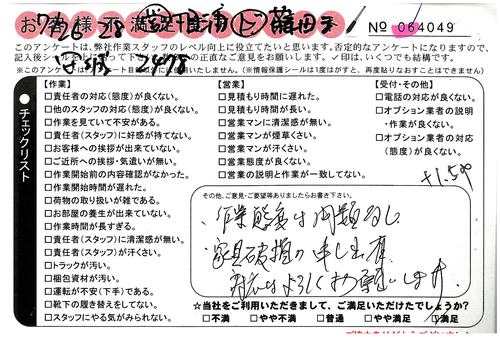 お客様不満足
No 064049
このアンケートは、弊社作業スタッフのレベル向上に役立てたいと思います。否定的なアンケートになりますので、
記入後
の正直なご意見をお願いします。✓印は、いくつでも結構です。
チェックリスト
【作業】
□責任者の対応(態度)が良くない。
□他のスタッフの対応(態度)が良くない。
□作業を見ていて不安がある。
□責任者(スタッフ)に好感が持てない。
□お客様への挨拶が出来ていない。
□ご近所への挨拶・気遣いが無い。
□作業開始前の内容確認がなかった。
□作業開始時間が遅れた。
□荷物の取り扱いが雑である。
□お部屋の養生が出来ていない。
□作業時間が長すぎる。
□責任者(スタッフ)に清潔感が無い。
□責任者(スタッフ)が汗くさい。
□トラックが汚い。
□梱包資材が汚い。
□運転が不安(下手)である。
□靴下の履き替えをしてない。
□スタッフにやる気がみられない。
【営業】
□見積もり時間に遅れた。
□見積もり時間が長い。
□営業マンに清潔感が無い。
□営業マンが煙草くさい。
□営業マンが汗くさい。
□営業態度が良くない。
□営業の説明と作業が一致してない。
【受付・その他】
□電話の対応が良くない。
□オプション業者の説明
・作業が良くない。
□オプション業者の対応
(態度)が良くない。
その他、ご意見・ご要望等ありましたらお書き下さい。
・作業態度は問題なし
・家具破損の申し出有
対応よろしくお願いします。
☆当社をご利用いただきまして、ご満足いただけたでしょうか?
□不満 □やや不満 □普通 □やや満足 □満足